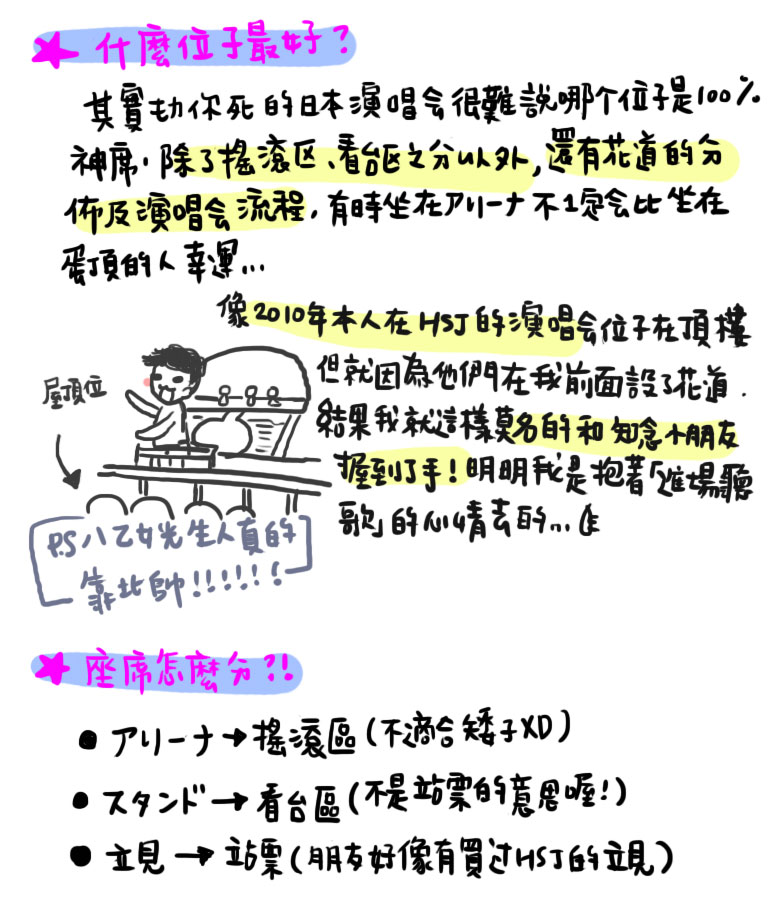 ★ 什麼位子最好？
其實劫你死的日本演唱会很難說哪个位子是100%
神席．除了搖滾区、看台区之分以外，還有花道的分
佈及演唱会流程，有時坐在アリーナ不1定会比坐在
蛋頂的人幸運...
像2010年本人在HSJ的演唱会位子在頂樓
但就因為他們在我前面設了花道．
結果我就這樣莫名的和知念小朋友
握到了手！明明我是抱著「進場聽
歌」的心情去的...(
屋頂位
P.S八乙女光生人真的
靠北帥!!!!!!
★ 座席怎麼分?!
● アリーナ→搖滾區(不適合矮子XD)
● スタンド→看台區(不是站票的意思喔!)
● 立見→站票(朋友好像有買过HSJ的立見)